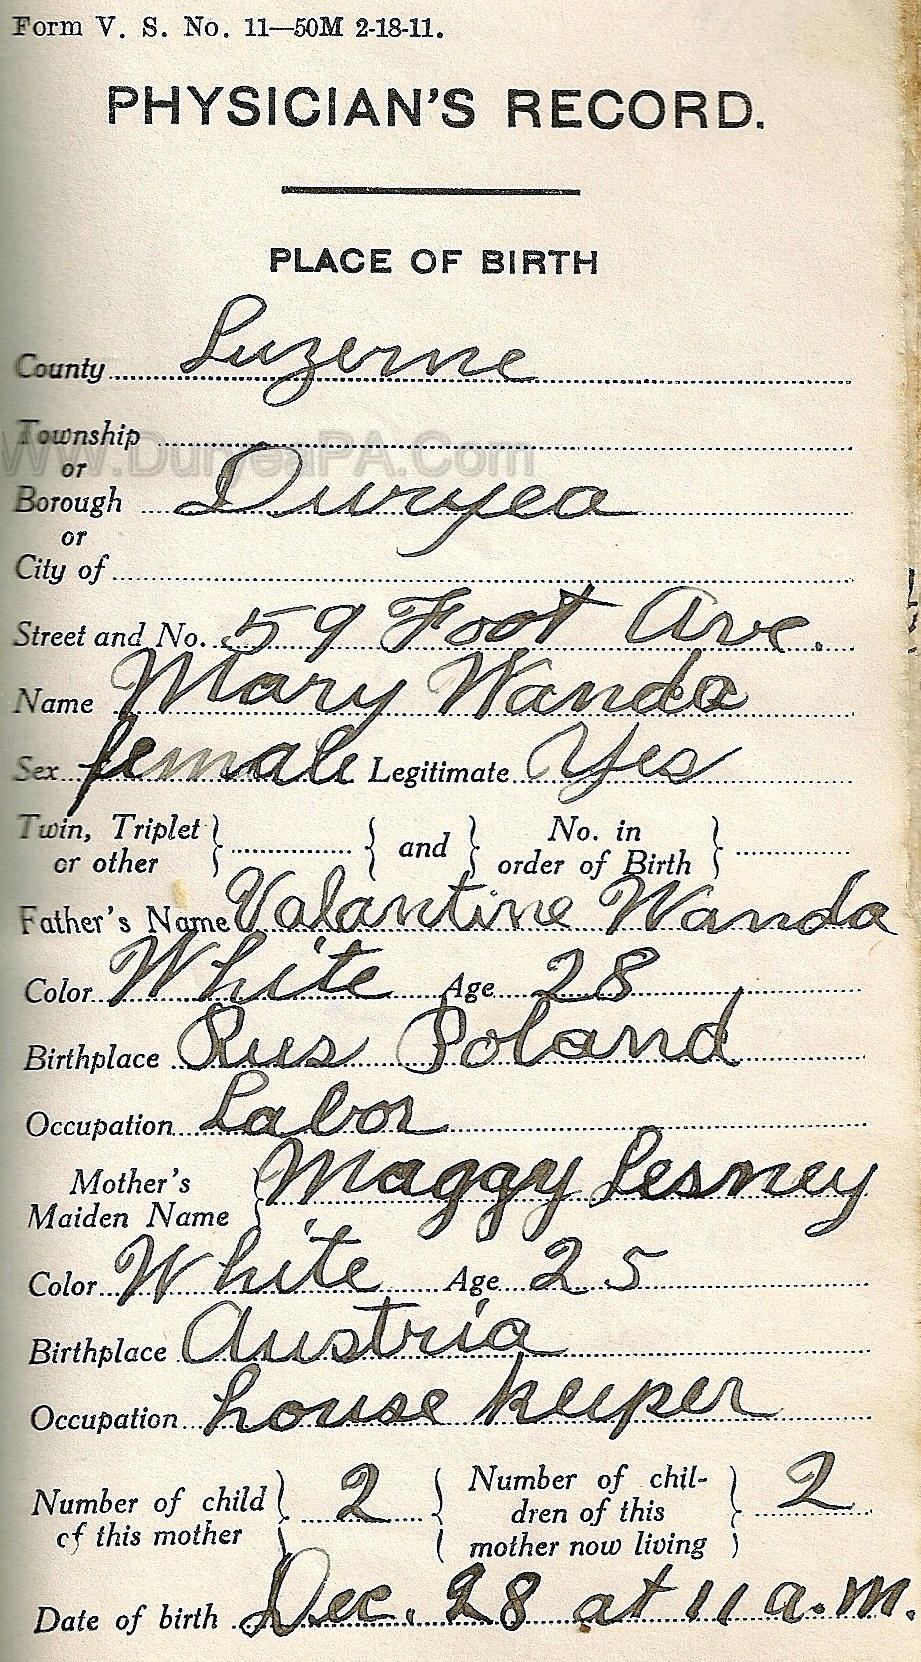 Form V. S. No. 11—50M 2-18-11.
PHYSICIAN'S RECORD.
PLACE OF BIRTH
County Luzerne
Township
WWW.DuryeaPA.Com
or
Borough Duryea
or
City of
Street and No. 59 Foot Ave.
Name Mary Wanda
Sex female Legitimate Yes
Twin, Triplet or other } { and } No. in order of Birth }
Father's Name Valantine Wanda
Color White Age 28
Birthplace Rus Poland
Occupation Labor
Mother's Maiden Name { Maggy Lesney
Color White Age 25
Birthplace Austria
Occupation house keeper
Number of child of this mother } 2 { Number of chil-dren of this mother now living } 2
Date of birth Dec. 28 at 11 a.m.